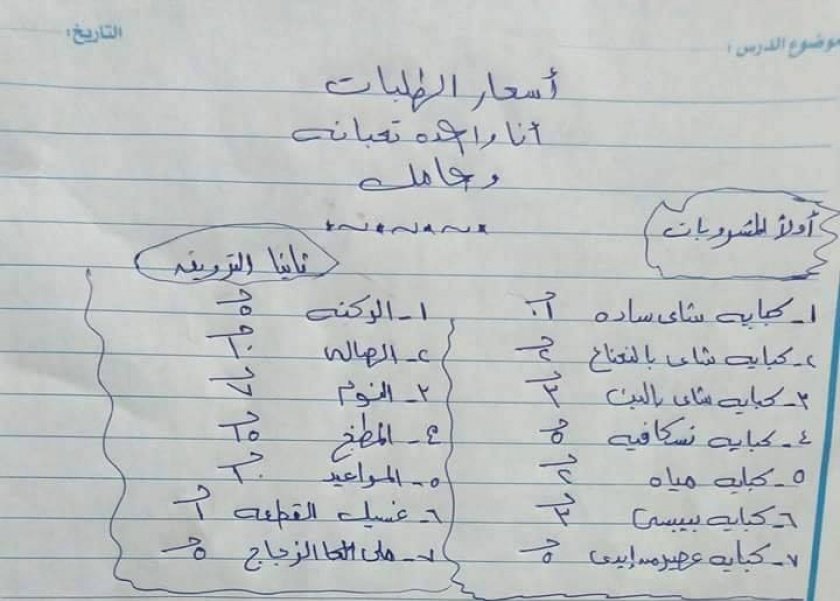 موضوع الدرس:
التاريخ:
أسعار الطلبات
أنا واحده تعبانه
وحامل
أولاً المشروبات
١- كبايه شاى ساده ١ج
٢- كبايه شاى بالنعناع ٢ج
٣- كبايه شاى بالبن ٣ج
٤- كبايه نسكافيه ٥ج
٥- كبايه مياه ٢ج
٦- كبايه بيبسى ٣ج
٧- كبايه عصير من إيدى ٥ج
ثانيا الترويقه
١- الركنه ٥ج
٢- الصاله ١٠ج
٣- النوم ٧ج
٤- المطبخ ١٥ج
٥- المواعيد ٢٠ج
٦- غسيل القطعه ١ج
٧- ملى الزجاج ٥ج